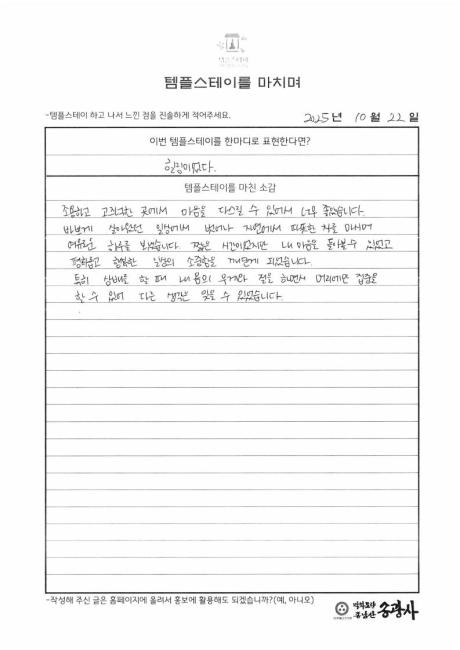 템플스테이
템플스테이를 마치며
-템플스테이 하고 나서 느낀 점을 진솔하게 적어주세요.
2025년 10월 22일
이번 템플스테이를 한마디로 표현한다면?
힐링이었다.
템플스테이를 마친 소감
조용하고 고즈넉한 곳에서 마음을 다스릴 수 있어서 너무 좋았습니다.
바쁘게 살아왔던 일상에서 벗어나 자연에서 따뜻한 차를 마시며
여유로운 하루를 보냈습니다. 짧은 시간이었지만 내 마음을 돌아볼 수 있었고
평화롭고 행복한 일상의 소중함을 깨닫게 되었습니다.
특히 상배를 할 때 내 몸의 무게와 절을 하면서 머리에만 집중을
할 수 있어 다른 생각은 잊을 수 있었습니다.
-작성해 주신 글은 홈페이지에 올려서 홍보에 활용해도 되겠습니까?(예, 아니오)
송광사